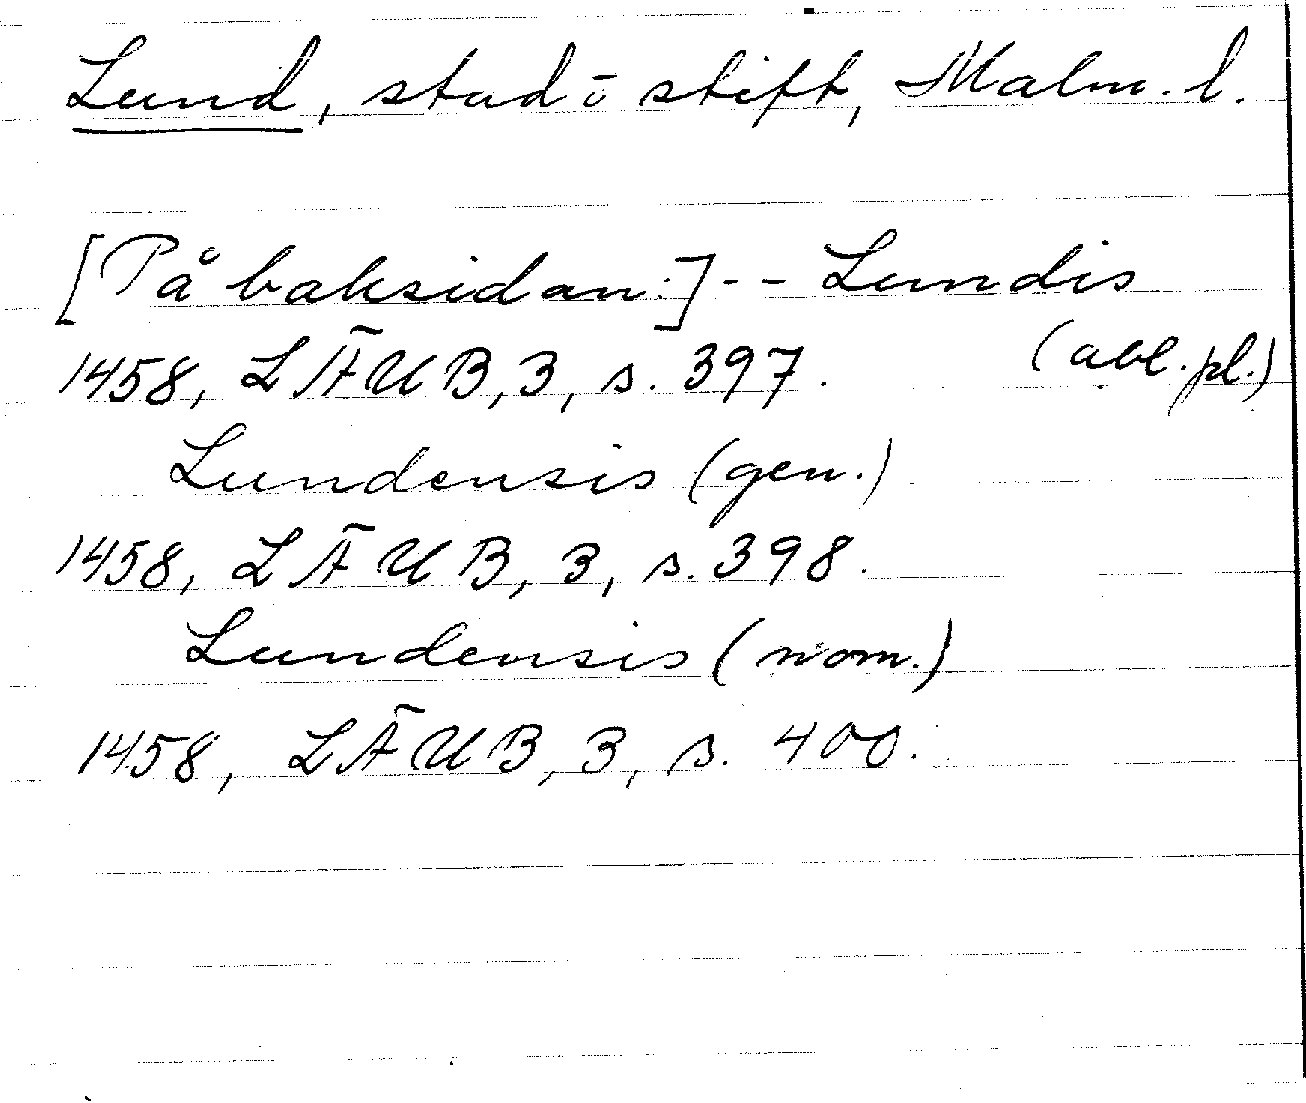 Lund, stad o stift, Malm. l.
[På baksidan:] -- Lundis
(abl. pl.)
1458, LÄUB, 3, s. 397.
Lundensis (gen.)
1458, LÄUB, 3, s. 398.
Lundensis (nom.)
1458, LÄUB, 3, s. 400.